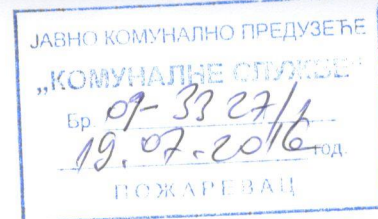 ЈАВНО КОМУНАЛНО ПРЕДУЗЕЋЕ
„КОМУНАЛНЕ СЛУЖБЕ"
Бр. 01-3327/1
19.07.2016 год.
ПОЖАРЕВАЦ